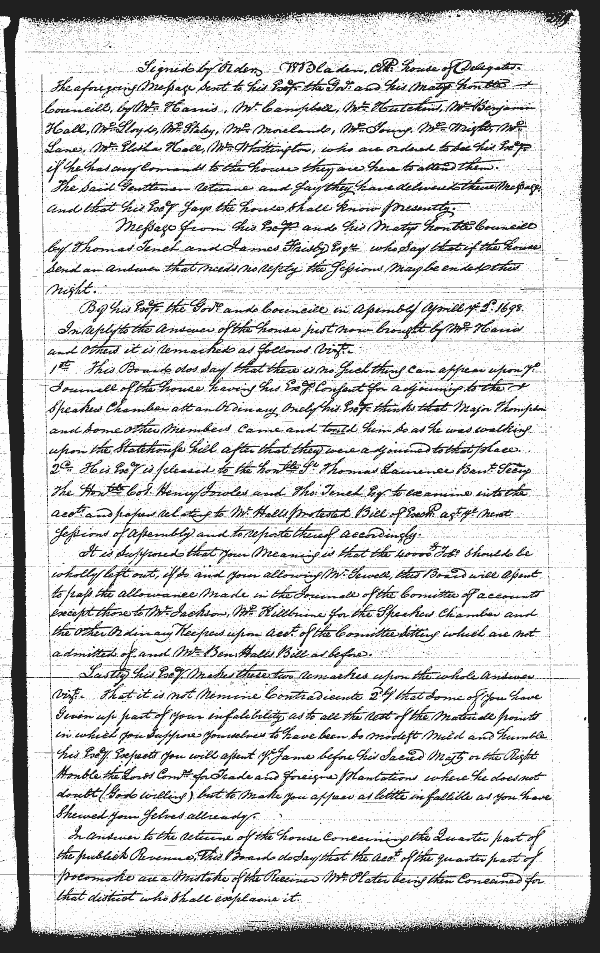 Signed by Order W Bladen, Clk. house of Delegates.
The aforegoing Message Sent to his Excy the Govr. and his Matys honble
Councill, by Mr. Harris, Mr. Campbell, Mr. Hutchins, Mr. Benjamin
Hall, Mr. Lloyd, Mr. Mr. Moreland, Mr. Mr. Wright, Mr.
Lane, Mr. Elisha Hall, Mr. Whittington, who are ordered to his Excy
if he has any Comands to the house they are here to attend them.
The Said Gentlemen returne and Say they have delivered their Message,
and that his Excy Says the house Shall know presently.
Message from his Excy and his Matys honble Councill
by Thomas Tench and James Frisby Esqrs. who Say that if the house
Send an answer that needs no reply the Sessions may be ended this
night.
By his Excy the Govr. and Councill in Assembly Aprill ye 2d. 1698.
In reply to the Answer of the house just now brought by Mr. Harris
and others it is remarked as follows vizt.
1st. This Board dos Say that there is no Such thing Can appear upon ye
Journall of the house having his Excy Consent for adjourning to the
Speakers Chamber att an Ordinary Onely his Excy thinks that Major Thompson
and Some other Members Came and tould him So as he was walking
upon the Statehouse hill after that they were adjourned to that place.
2dly. His Excy is pleased to the honble Sr. Thomas Laurence Bart. Secry
the Honble Col. Henry Jowles and Tho. Tench Esqr to examine into the
acct. and papers relating to Mr. Halls protested Bill of Excha. agt. ye next
Sessions of Assembly and to reporte thereof accordingly.
It is Supposed that your Meaning is that the Tob. Should be
wholly left out, if So and your allowing Mr. Sewell, this Board will Assent
to pass the allowance Made in the Journall of the Comitee of accounts
except those to Mr. Jackson, Mr. Killburne for the Speakers Chamber and
the other Ordinary Keepers upon acct. of the Comittee Sitting which are not
admitted of and Mr. Ben Halls Bill as before.
Lastly his Excy Makes these two remarkes upon the whole Answer
vizt. That it is not Nemine Contradicente 2dly that Some of you have
Given up part of your infalibility, as to all the rest of the Materiall points
in which you Suppose yourselves to have been So modest Mild and humble
his Excy Expects you will assent ye Same before his Sacred Maty or the Right
Honble the Lords Comrs. for Trade and foreigne plantations where he does not
doubt (God willing) but to make you appear as little infallible as you have
Shewed your Selves allready.
In Answer to the returne of the house Concerning the Quarter part of
the publick Revenue, This Board do Say that the acct. of the quarter part of
pocomoke are a Mistake of the Receiver Mr. Plater being then Concerned for
that district who Shall explaine it.